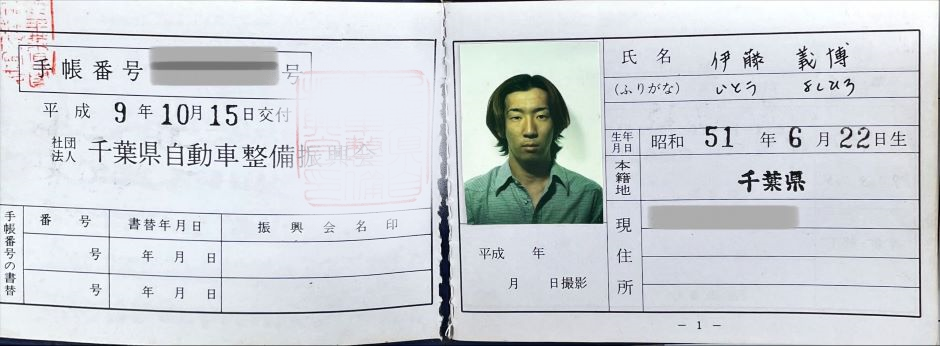 手帳番号 号
平成 9年10月15日交付
社団法人 千葉県自動車整備振興会
手帳番号の書替
番号 書替年月日 振興会名印
号 年 月 日
号 年 月 日
平成 年
月 日撮影
氏名 伊藤 義博
(ふりがな) いとう よしひろ
生年月日 昭和 51 年 6 月 22 日生
本籍地 千葉県
現住所
− 1 −